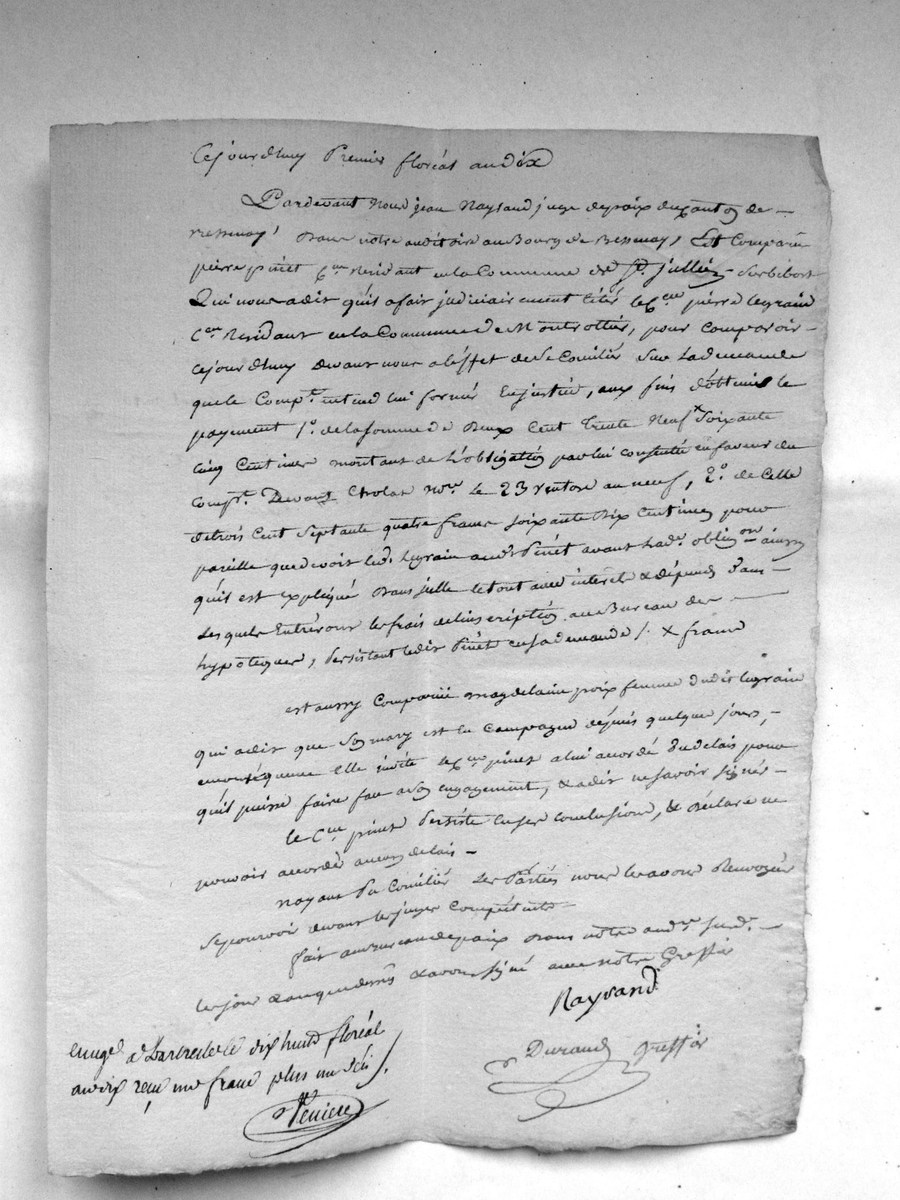 Cejourdhuy Premier floréal an dix
Pardevant Nous jean Raysand juge de paix du Canton de —
Bessenay, Dans notre auditoire au Bourg de Bessenay, Est Comparu
pierre pinet Cen Residant en la Commune de St. jullien Sur bibost
Qui nous a dit qu'il a fait judiciairement citér le Cen pierre legrain
Cen Residant en la Commune de Montrottier, pour comparoir —
cejourdhuy devant nous a l'éffet de Se Conciliér Sur La demande
que le Compt. entend lui formér En justice, aux fins d'obtenir le
payement 1°. de la somme de Deux Cent Trente Neuf x Soixante
Cinq Centimes montant de L'obligation par lui consentie en faveur du
Compt. Devant Cholat Nore. le 23 ventose an neuf, 2°. de Celle
de trois Cent Septante quatre francs soixante Dix Centimes pour
pareille que devoit led. legrain aud. Pinét avant lad. obligon. ainsy
qu'il est expliqué Dans icelle le tout avec intérets & dépends Dans
Lesquels Entreront les frais de l'inscription au Bureau des —
hypoteques, Persistant ledit Pinét en sa demande /. x francs
est aussy Comparüe magdelaine proix femme dudit legrain
qui a dit que Son mary est en Campagne dépuis quelque jours, —
en conséquence elle invite le Cen pinet a lui accordé du delais pour
qu'il puisse faire face a son engagement, & a dit ne savoir signér —
le Cen pinet Persiste en ses conclusions, & déclare ne
pouvoir accordé aucun delais —
N'ayant Pu Conciliér Les Parties nous les avons Renvoyées
Se pourvoir devant les juges Compétents —
fait au bureau de paix Dans nôtre audre. susd. —
les jour & an que devant & avons signé avec nôtre Greffier
Raysand
Durand greffier
enregé. a Larbresle le dix huit floréal
an dix reçu un franc plus un déci /.